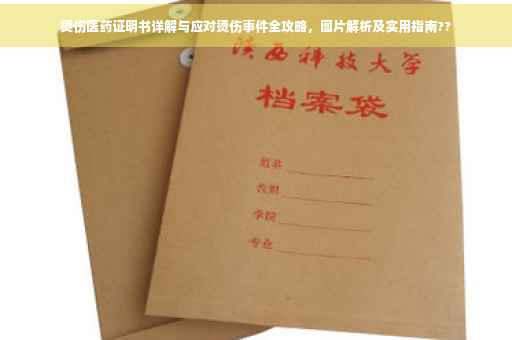 烫伤医药证明书详解与应对烫伤事件全攻略，图片解析及实用指南??
陕西科技大学
档案袋
姓名
学院
专业